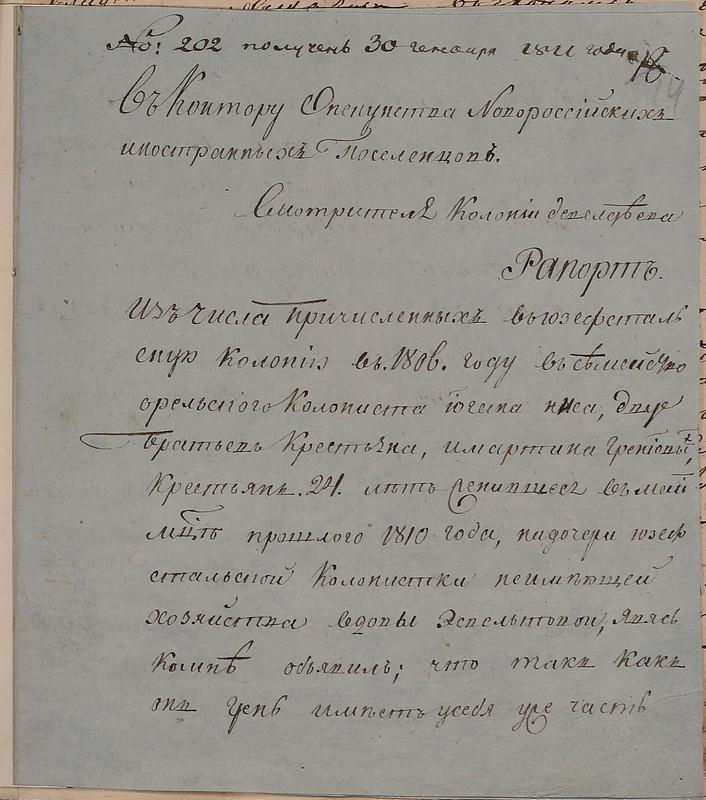 No: 202 получень 30 генваря 1811 года
Въ Контору Опекунства Новороссійскихъ
иностранныхъ Поселенцовъ.
Смотрителя Колоніи
Рапортъ.
Изъ числа причисленныхъ въ іозефсталь
скую колонію въ 1806. году въ сѣмейство
орельского Колониста іогана двуе
братьевъ Крестьяна, и мартина
Крестьянъ. 24. лѣтъ женившисе въ маіи
мцѣ прошлого 1810 года, на дочери юзеф
стальской Колонистки неимѣющей
хозяйства вдовы явясь
комнѣ объявилъ; что такъ какъ
онъ имѣетъ усебя уже часть